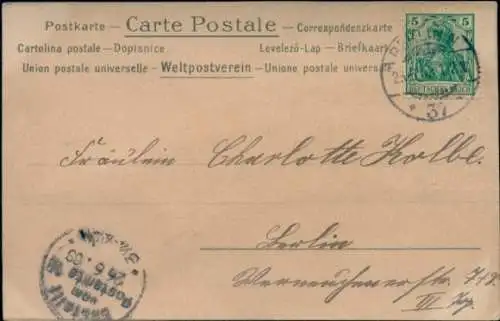 Postkarte — Carte Postale — Correspondenzkarte
Cartolina postale — Dopisnice Levelező-Lap — Briefkaart
Union postale universelle — Weltpostverein — Unione postale univers
5 5
DEUTSCHES REICH
37
Fräulein Charlotte Kolbe.
Berlin
Werneuchenerstr.
III
Bestellt
vom
Postamte